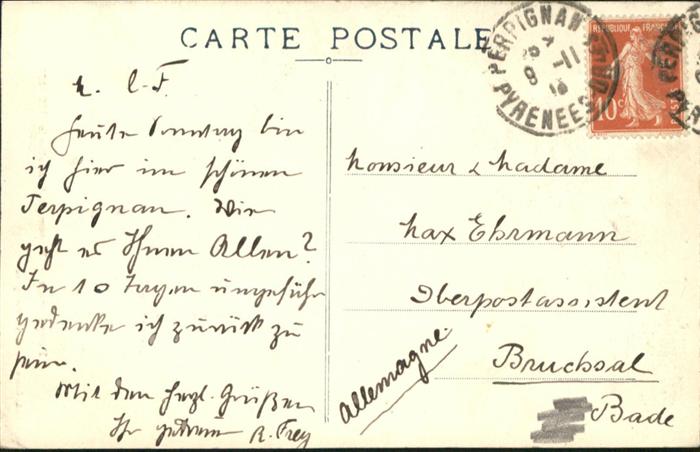 CARTE POSTALE
PERPIGNAN
PYRENEES
REPUBLIQUE FRANÇAISE
10c
M. l. F.
heute Sonntag bin
ich hier im schönen
Perpignan. Wie
geht es Ihnen Allen?
In 10 Tagen ungefähr
gedenke ich zurück zu
sein.
Mit den herzl. Grüßen
Ihr getreuer R. Frey
Monsieur & Madame
Max Ehrmann
Oberpostassistent
Bruchsal
Bade
Allemagne.